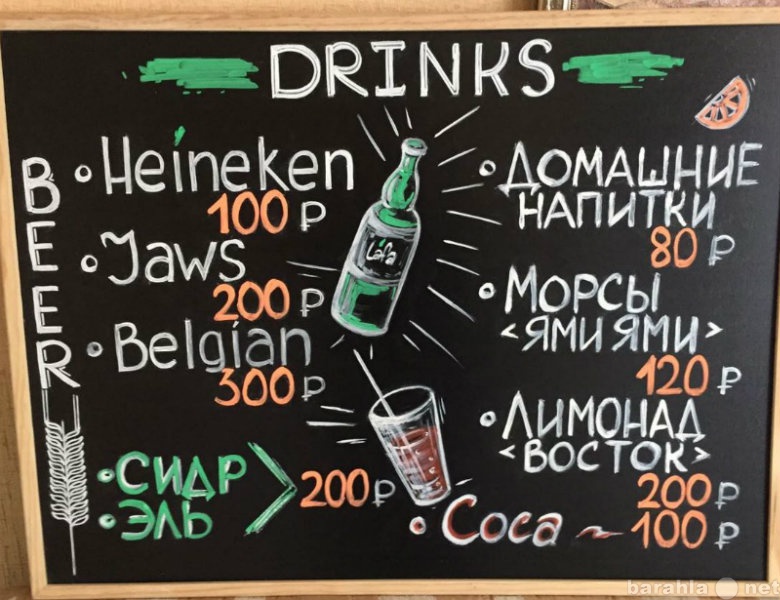 DRINKS
BEER
Heineken
100 ₽
Jaws
200 ₽
Belgian
300 ₽
СИДР
ЭЛЬ
200 ₽
ДОМАШНИЕ
НАПИТКИ
80 ₽
МОРСЫ
<ЯМИ ЯМИ>
120 ₽
ЛИМОНАД
<ВОСТОК>
200 ₽
Coca ~ 100 ₽
barahla net